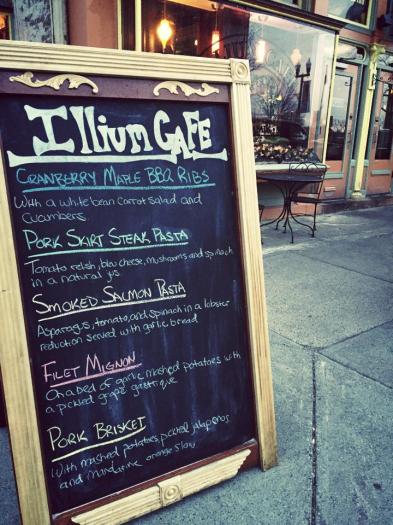 Illium CAFE
CRANBERRY MAPLE BBQ RIBS
With a white bean carrot salad and
Cucumbers.
PORK SKIRT STEAK PASTA
Tomato relish, bleu cheese, mushrooms and spinach
in a natural jus
SMOKED SALMON PASTA
Asparagus, tomato, and spinach in a lobster
reduction served with garlic bread
FILET MIGNON
On a bed of garlic mashed potatoes with
a pickled grape gastrique
PORK BRISKET
With mashed potatoes, pickled jalapenos
and mandarine orange slaw